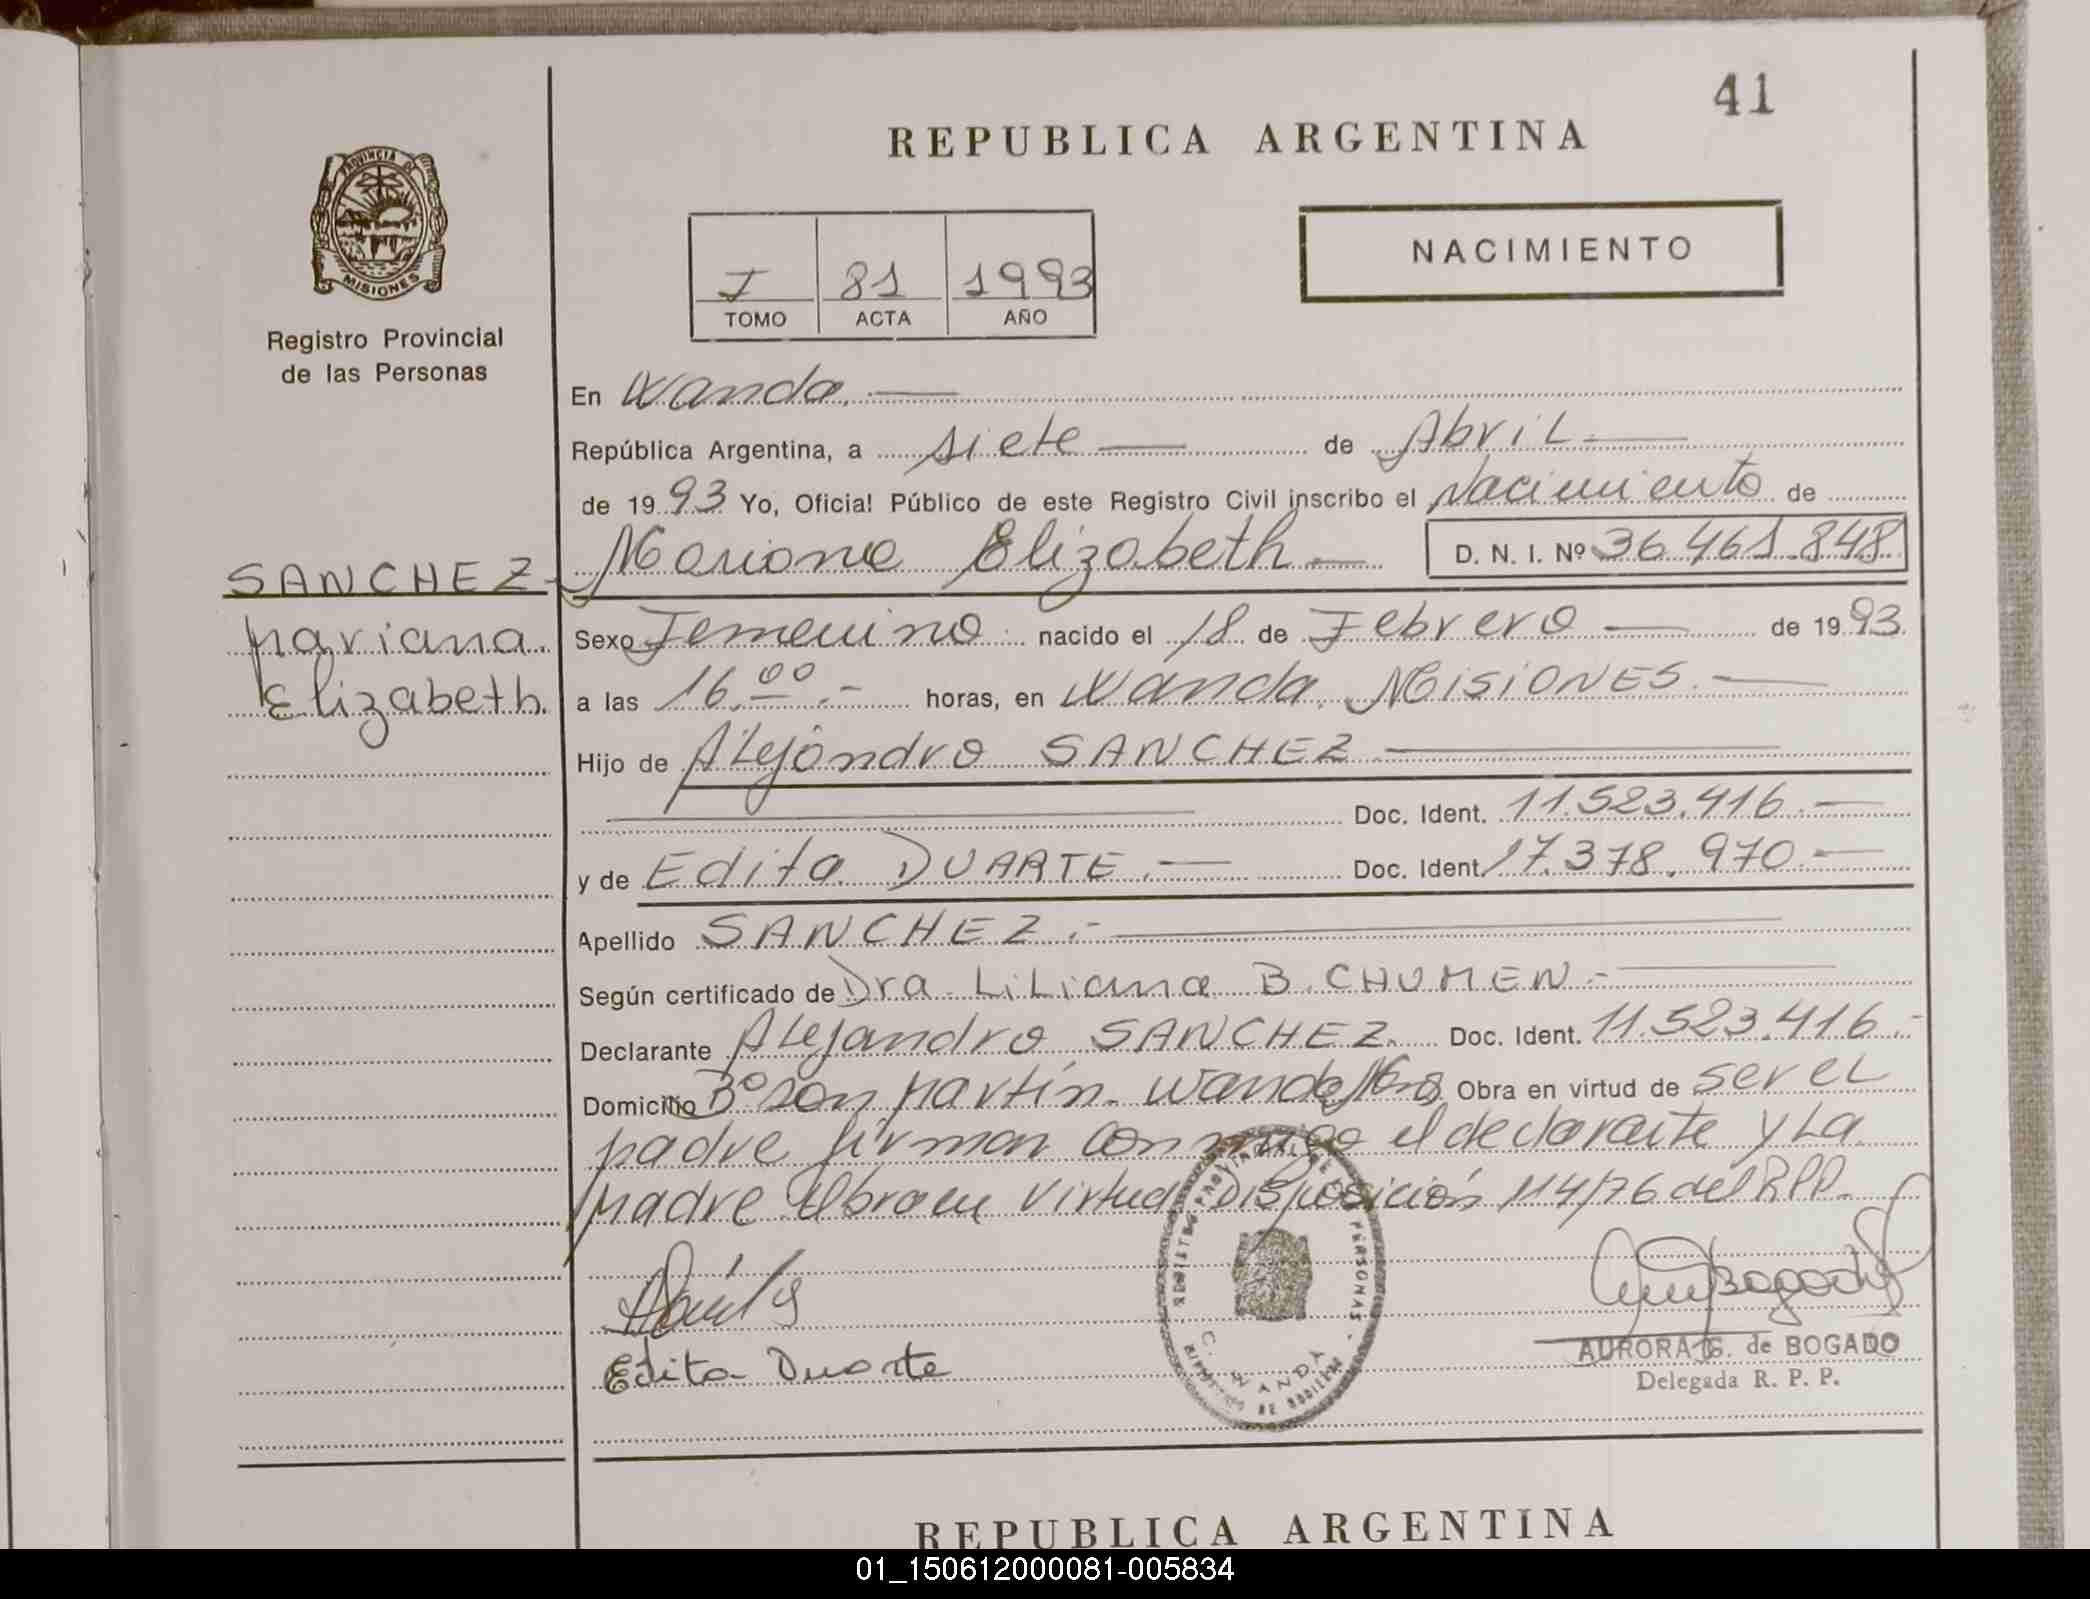 41
REPUBLICA ARGENTINA
PROVINCIA DE
MISIONES
NACIMIENTO
I 81 1993
TOMO ACTA AÑO
Registro Provincial
de las Personas
En Wanda.
República Argentina, a siete de Abril
de 1993 Yo, Oficial Público de este Registro Civil inscribo el Nacimiento de
SANCHEZ
Mariana Elizabeth D. N. I. Nº 36.461.848
mariana
Elizabeth.
Sexo Femenino nacido el 18 de Febrero de 1993
a las 16.00.- horas, en Wanda. MISIONES.
Hijo de Alejandro SANCHEZ
Doc. Ident. 11.523.416.
y de Edita DUARTE. Doc. Ident. 17.378.970.
Apellido SANCHEZ.-
Según certificado de Dra. Liliana B. CHUMEN.-
Declarante Alejandro SANCHEZ. Doc. Ident. 11.523.416.-
Domicilio Bº San Martín. Wanda Mnes Obra en virtud de ser el
padre firman conmigo el declarante y La
Madre Obra en virtud Disposición 114/76 del RPP.
REGISTRO PROVINCIAL DE PERSONAS
WANDA
Edita Duarte
AURORA G. de BOGADO
Delegada R. P. P.
REPUBLICA ARGENTINA
01_150612000081-005834